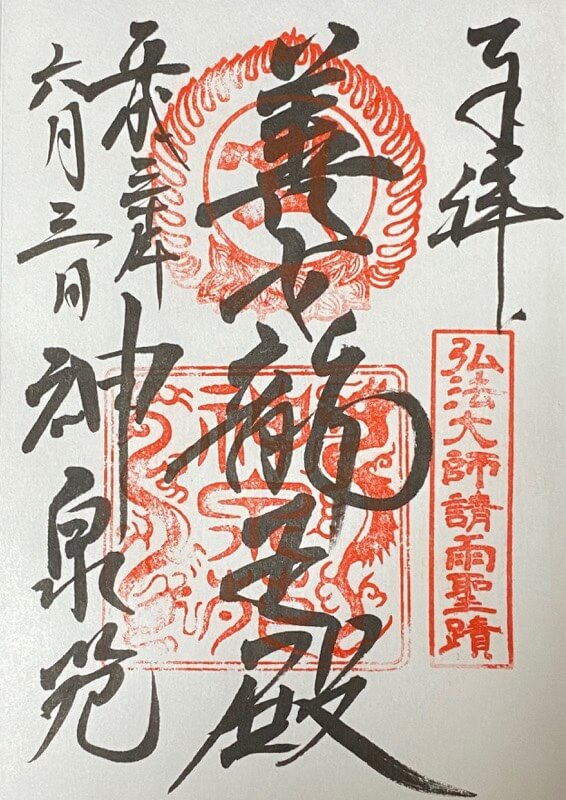 奉拝
弘法大師請雨聖蹟
善女龍王殿
平成
六月三日
神泉苑